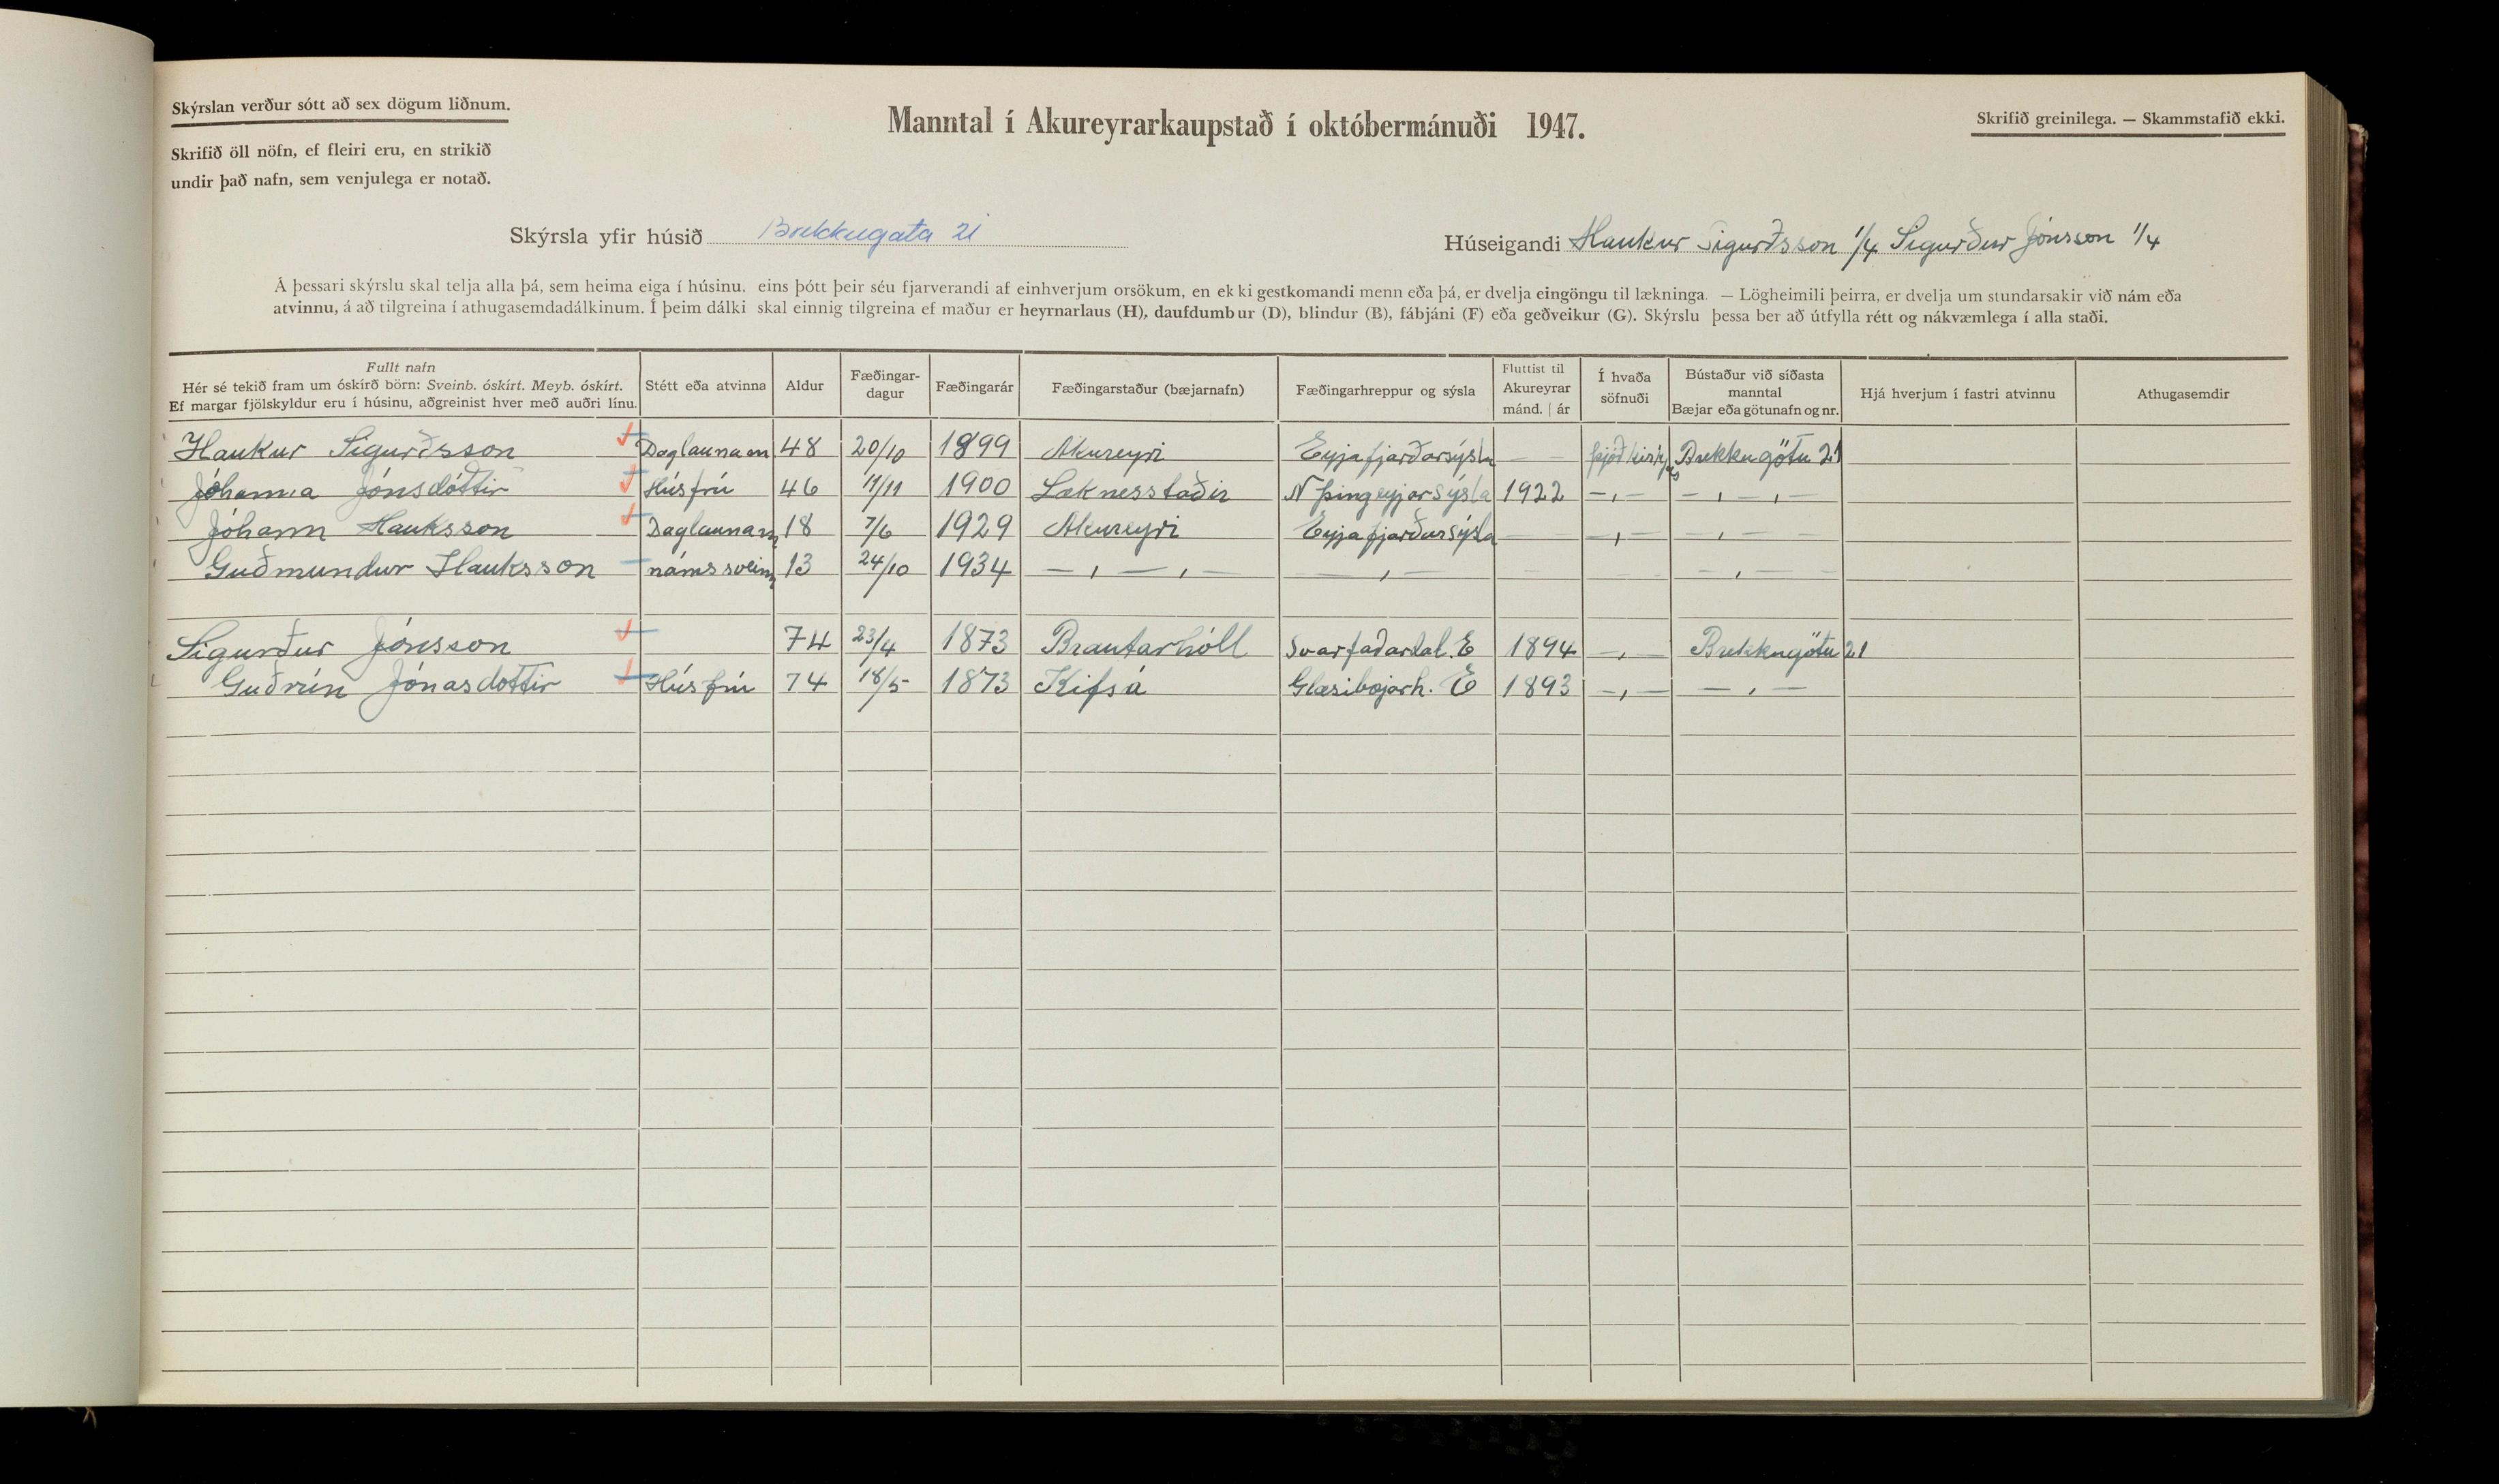 Skýrslan verður sótt að sex dögum liðnum.
Skrifið öll nöfn, ef fleiri eru, en strikið
undir það nafn, sem venjulega er notað.
Manntal í Akureyrarkaupstað í októbermánuði 1947.
Skrifið greinilega. — Skammstafið ekki.
Skýrsla yfir húsið Brekkugata 21
Húseigandi Haukur Sigurðsson 1/4 Sigurður Jónsson 1/4
Á þessari skýrslu skal telja alla þá, sem heima eiga í húsinu, eins þótt þeir séu fjarverandi af einhverjum orsökum, en ekki gestkomandi menn eða þá, er dvelja eingöngu til lækninga. — Lögheimili þeirra, er dvelja um stundarsakir við nám eða
atvinnu, á að tilgreina í athugasemdadálkinum. Í þeim dálki skal einnig tilgreina ef maður er heyrnarlaus (H), daufdumbur (D), blindur (B), fábjáni (F) eða geðveikur (G). Skýrslu þessa ber að útfylla rétt og nákvæmlega í alla staði.
Fullt nafn
Hér sé tekið fram um óskírð börn: Sveinb. óskírt. Meyb. óskírt.
Ef margar fjölskyldur eru í húsinu, aðgreinist hver með auðri línu.
Stétt eða atvinna
Aldur
Fæðingar-
dagur
Fæðingarár
Fæðingarstaður (bæjarnafn)
Fæðingarhreppur og sýsla
Fluttist til
Akureyrar
mánd. | ár
Í hvaða
söfnuði
Bústaður við síðasta
manntal
Bæjar eða götunafn og nr.
Hjá hverjum í fastri atvinnu
Athugasemdir
Haukur Sigurðsson Daglaunam 48 20/10 1899 Akureyri Eyjafjarðarsýsla — Brekkugötu 21
Jóhanna Jónsdóttir Húsfrú 46 11/11 1900 Læknesstaðir N Þingeyjarsýsla 1922 —,— —,—,—
Jóhann Hauksson Daglaunam 18 7/6 1929 Akureyri Eyjafjarðarsýsla — —,— —,—
Guðmundur Hauksson námssveinn 13 24/10 1934 —,—,— —,— — — —,—
Sigurður Jónsson — 74 23/4 1873 Brautarhóll Svarfaðardal. E 1894 —,— Brekkugötu 21
Guðrún Jónasdottir Húsfrú 74 18/5 1873 Kifsá Glæsibæjarh. E 1893 —,— —,—